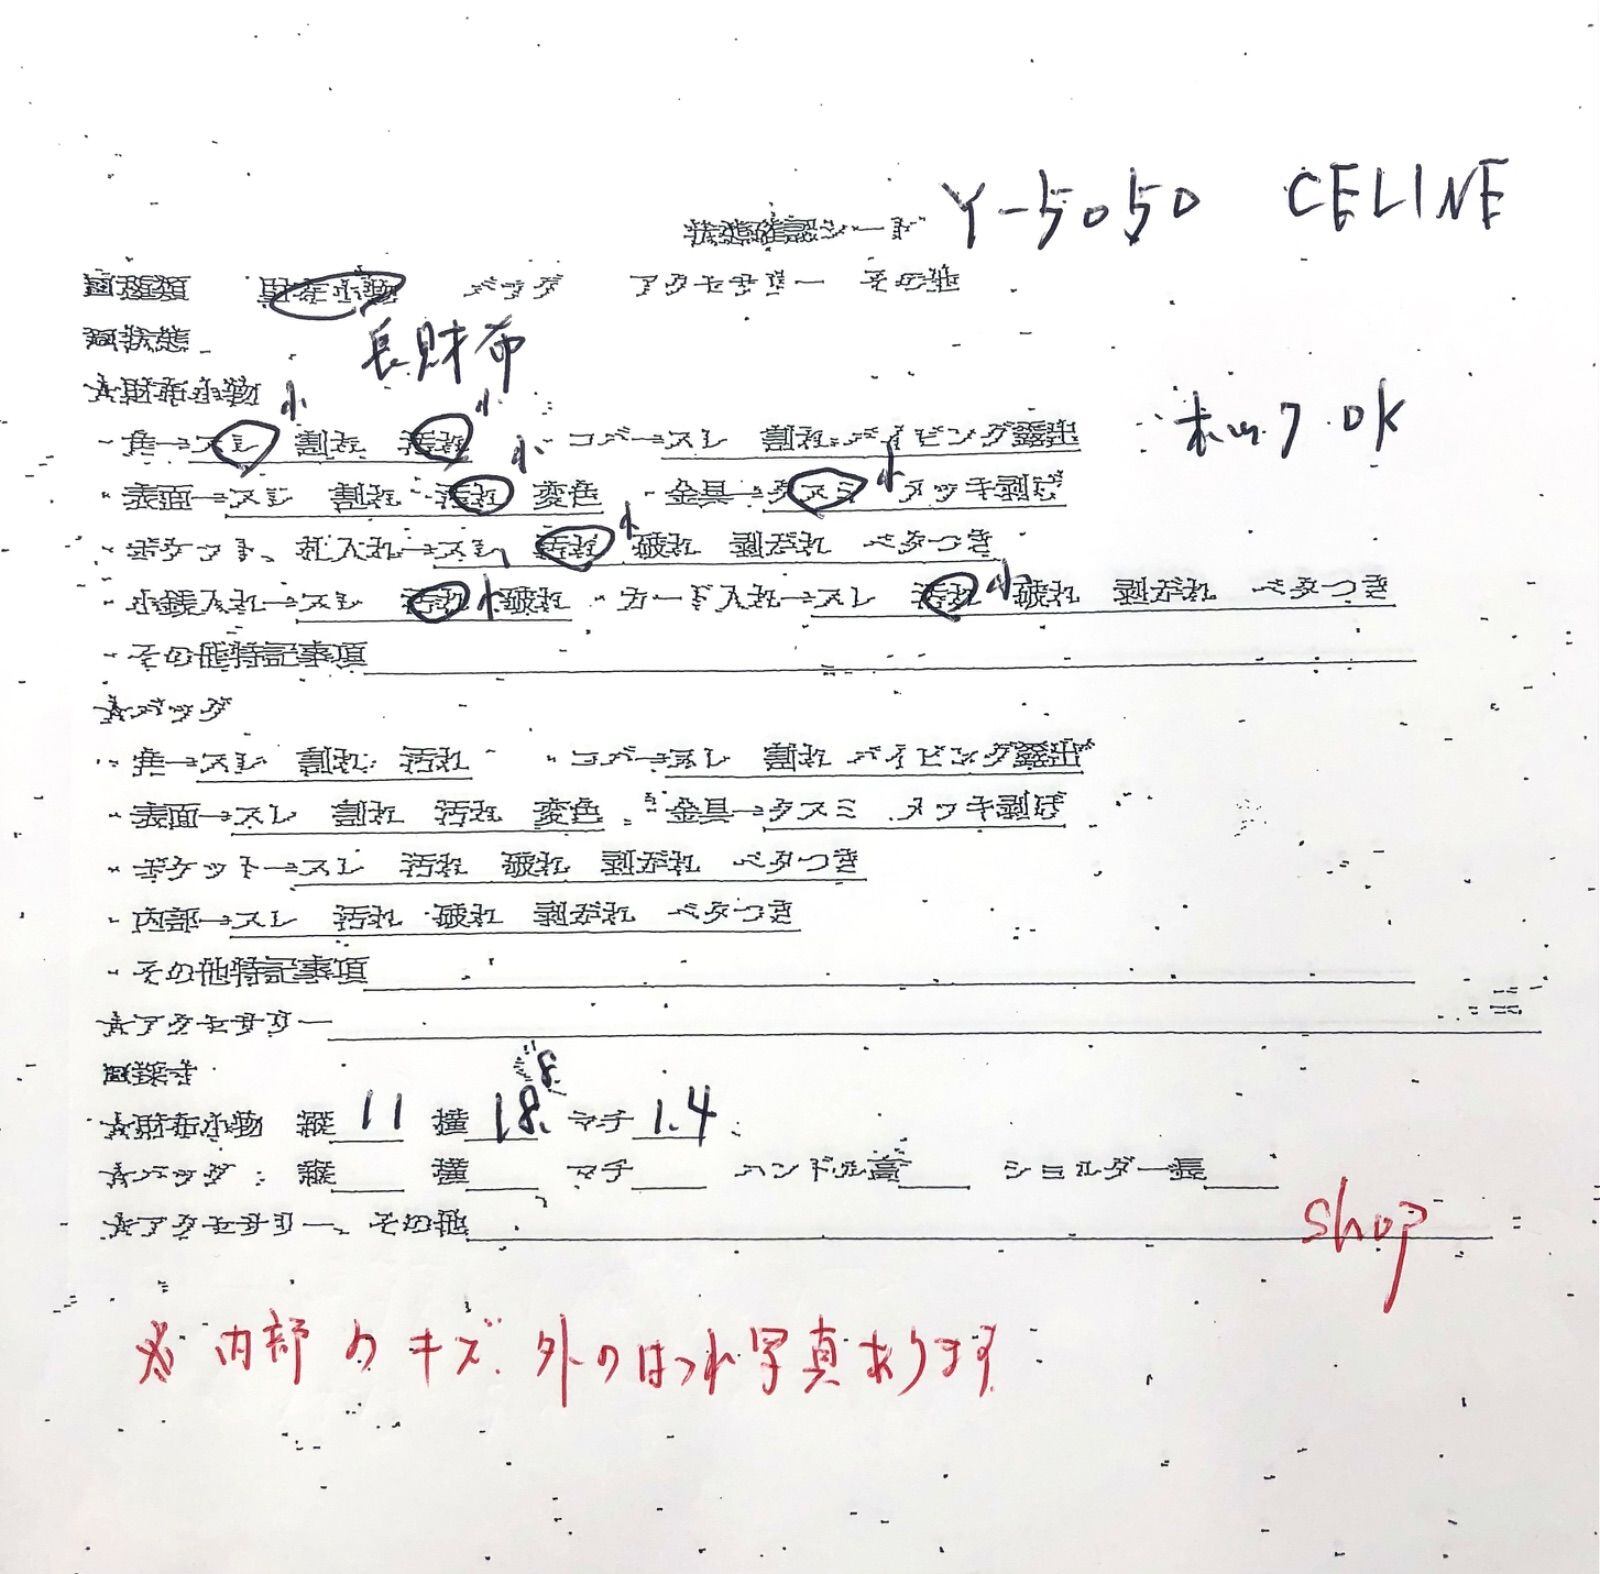 状態確認シート Y-5050 CELINE
■種類 財布小物 バッグ アクセサリー その他
■状態 長財布
☆財布小物
・角→スレ 小 割れ 汚れ 小 ・コバ→スレ 割れ パイピング露出 ホック OK
・表面→スレ 割れ 汚れ 小 変色 ・金具→クスミ 小 メッキ剥げ
・ポケット、札入れ→スレ 汚れ 小 破れ 剥がれ ベタつき
・小銭入れ→スレ 汚れ 小 破れ ・カード入れ→スレ 汚れ 小 破れ 剥がれ ベタつき
・その他特記事項
☆バッグ
・角→スレ 割れ 汚れ ・コバ→スレ 割れ パイピング露出
・表面→スレ 割れ 汚れ 変色 ・金具→クスミ メッキ剥げ
・ポケット→スレ 汚れ 破れ 剥がれ ベタつき
・内部→スレ 汚れ 破れ 剥がれ ベタつき
・その他特記事項
☆アクセサリー
■採寸
☆財布小物 縦 11 横 18.8 マチ 1.4
☆バッグ 縦 横 マチ ハンドル高 ショルダー長
☆アクセサリー、その他
shop
※内部のキズ、外のほつれ写真あります